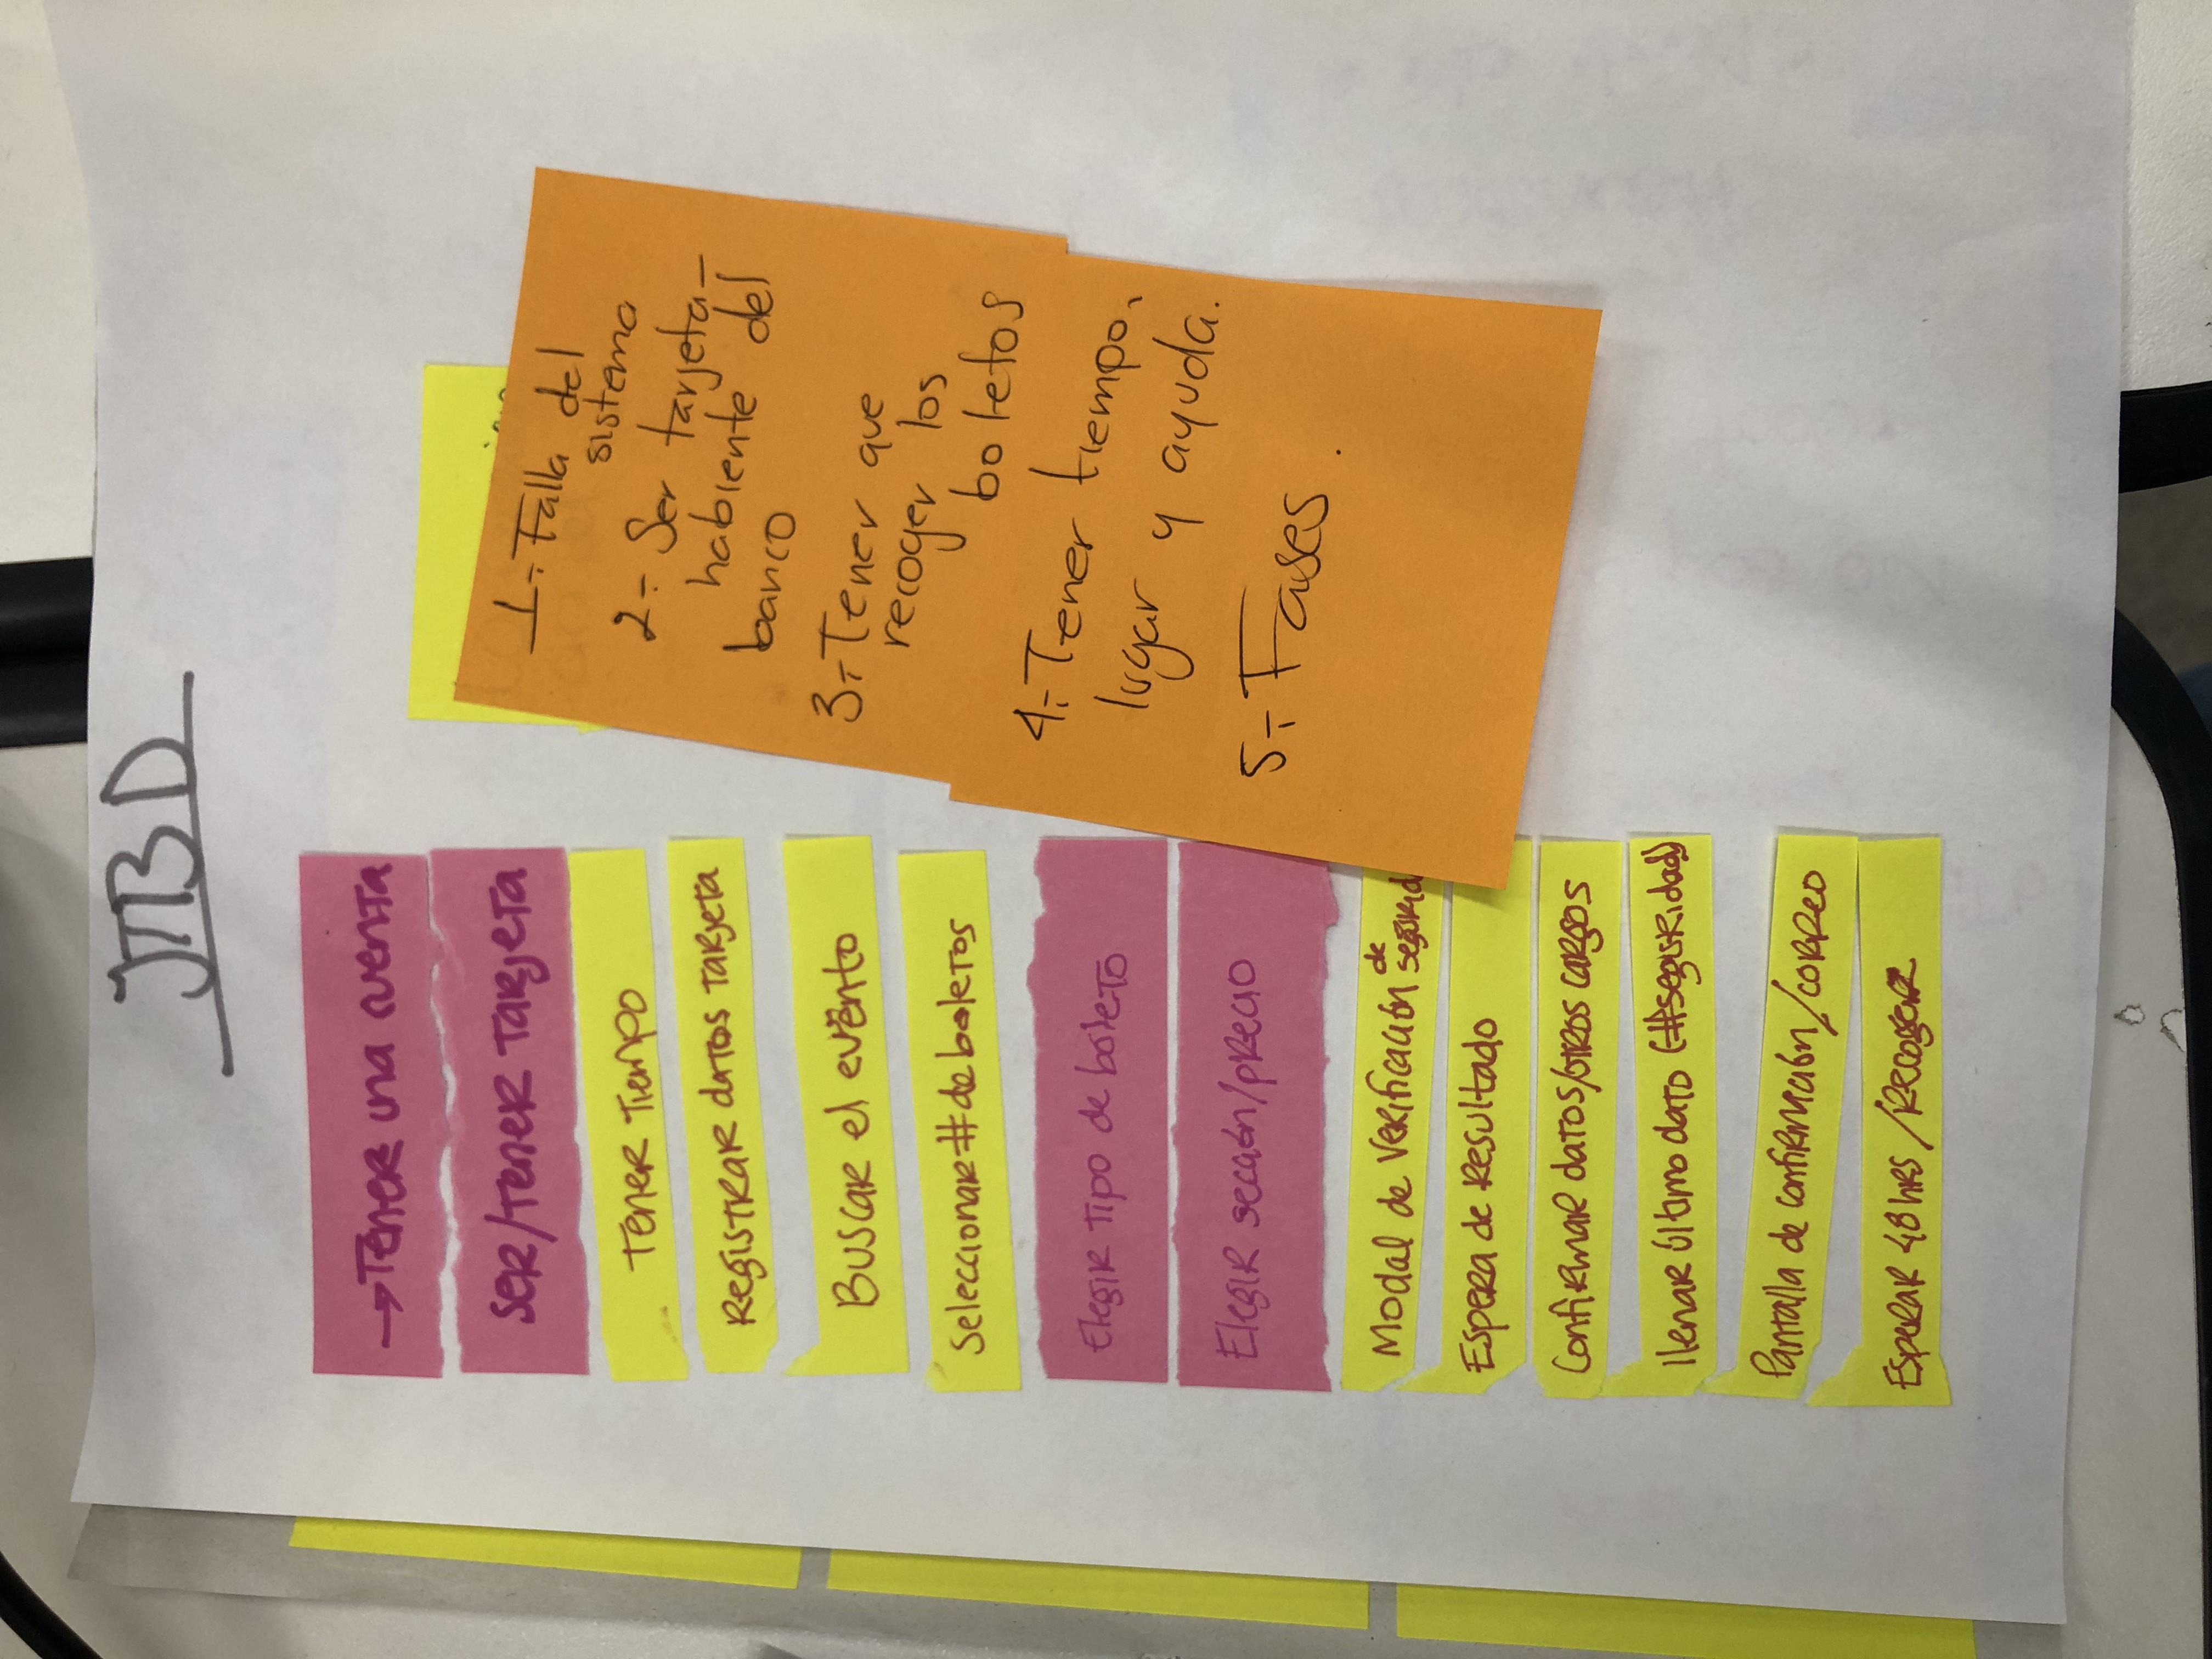 JTBD
→Tener una cuenta
Ser/Tener Tarjeta
Tener Tiempo
Registrar datos Tarjeta
Buscar el evento
Seleccionar # de boletos
Elegir Tipo de boleto
Elegir sección/precio
Modal de Verificación de
Espera de Resultado
Confirmar datos/otros cargos
llenar último dato (#seguridad)
Pantalla de confirmación/correo
Esperar 48 hrs /Recoger
1.- Falla del
sistema
2.- Ser tarjeta-
habiente del
banco
3.- Tener que
recoger los
boletos
4.- Tener tiempo,
lugar y ayuda.
5.- Fases.